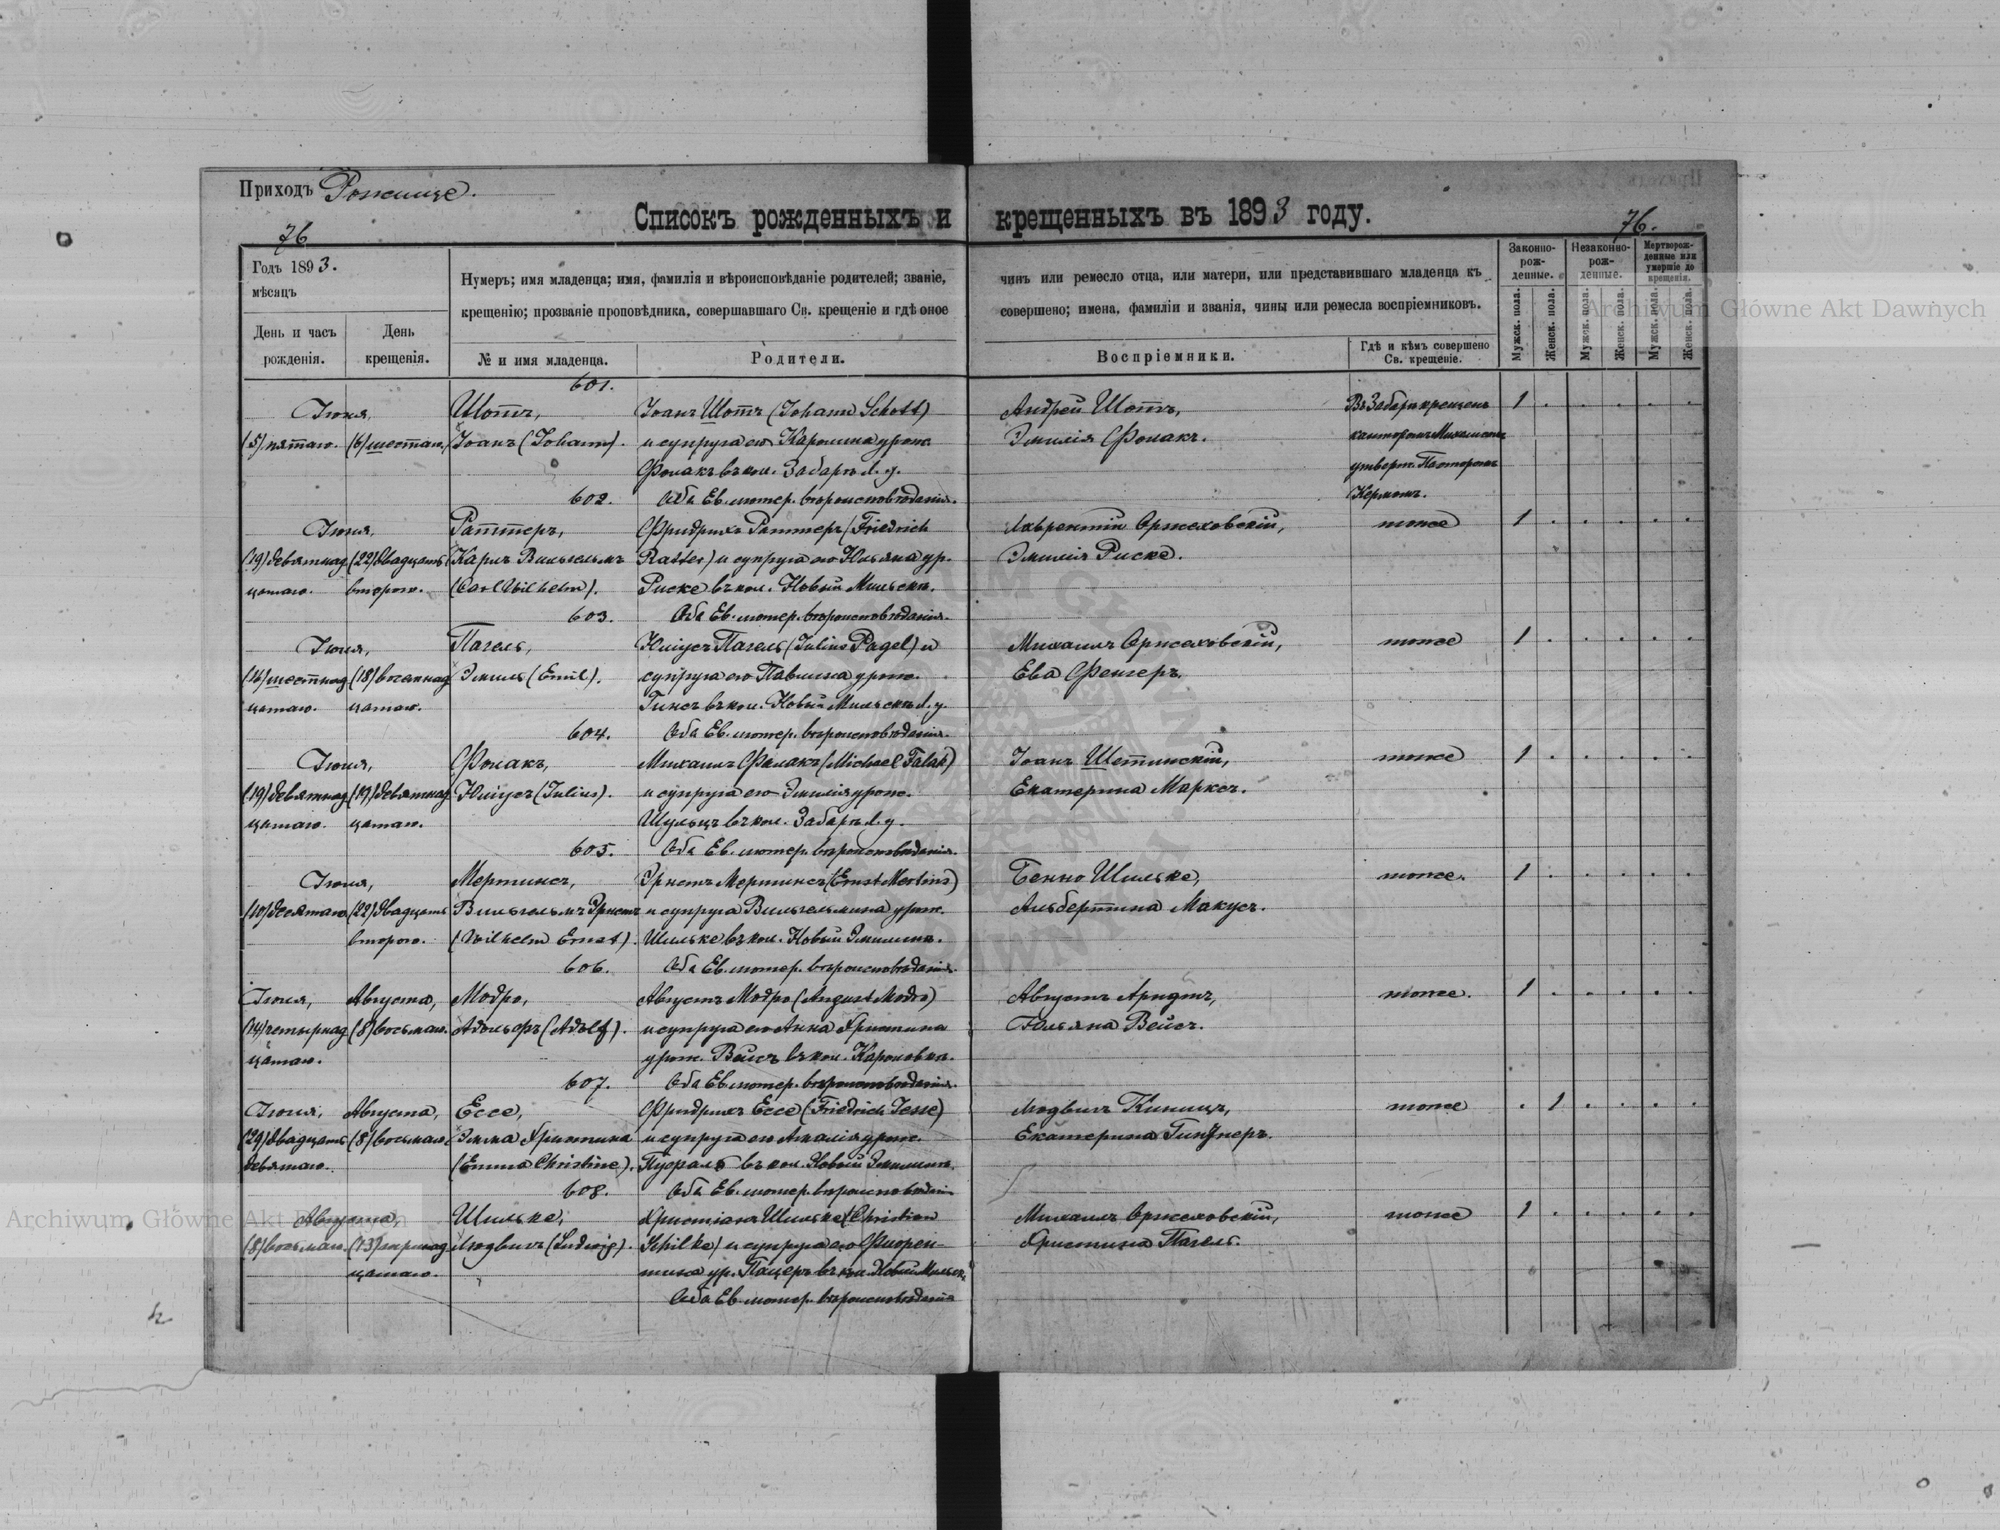 Приходъ Рожище.
Списокъ рожденныхъ и крещенныхъ въ 1893 году.
76 76.
Годъ 1893.
мѣсяцъ
День и часъ рожденія.
День крещенія.
Нумеръ; имя младенца; имя, фамилія и вѣроисповѣданіе родителей; званіе, чинъ или ремесло отца, или матери, или представившаго младенца къ
крещенію; прозваніе проповѣдника, совершавшаго Св. крещеніе и гдѣ оное совершено; имена, фамиліи и званія, чины или ремесла воспріемниковъ.
№ и имя младенца.
Родители.
Воспріемники.
Гдѣ и кѣмъ совершено Св. крещеніе.
Законно-рож-денные.
Незаконно-рож-денные.
Мертворож-денные или умершіе до крещенія.
Мужск. пола. Женск. пола. Мужск. пола. Женск. пола. Мужск. пола. Женск. пола.
601.
Шоттъ, Іоанъ Шоттъ (Johann Schott) Андрей Шоттъ, 1
(5) пятаго. (6) шестаго. Іоанъ (Johann). и супруга его Каролина урож. Эмилія Фолакъ.
Фолакъ въ кол. Забара л. у.
602. Оба Ев. лютер. вѣроисповѣданія.
Раттеръ, Фридрихъ Раттеръ (Friedrich Лаврентій Оржеховскій, тоже 1
(19) девятнад (22) двадцать Карлъ Вильгельмъ Ratter) и супруга его Юльяна ур. Эмилія Риске.
цатаго. второго. (Carl Wilhelm). Риске въ кол. Новый Мильскъ.
603. Оба Ев. лютер. вѣроисповѣданія.
Пагель, Юліусъ Пагель (Julius Pagel) и Михаилъ Оржеховскій, тоже 1
(16) шестнад (18) восемнад Эмиль (Emil). супруга его Павлина урож. Ева Фенгеръ.
цатаго. цатаго. въ кол. Новый Мильскъ л. у.
604. Оба Ев. лютер. вѣроисповѣданія.
Фолакъ, Михаилъ Фолакъ (Michael Falak) Іоанъ Шетинскій, тоже 1
(19) девятнад (19) девятнад Юліусъ (Julius). и супруга его Эмилія урож. Екатерина Марксъ.
цатаго. цатаго. Шульцъ въ кол. Забара л. у.
605. Оба Ев. лютер. вѣроисповѣданія.
Мертинсъ, Эрнстъ Мертинсъ (Ernst Mertins) Бенно Шильке, тоже. 1
(10) десятаго (22) двадцать Вильгельмъ Эрнстъ и супруга Вильгельмина урож. Альбертина Макусъ.
второго. (Wilhelm Ernst). Шильке въ кол. Новый
606. Оба Ев. лютер. вѣроисповѣданія.
Августа, Модро, Августъ Модро (August Modro) Августъ Арндтъ, тоже. 1
(14) четырнад (8) восьмаго. Адольфъ (Adolf). и супруга его Анна Христина Юльяна Вейсъ.
цатаго. урож. Вейсъ въ кол. Кароловка.
607. Оба Ев. лютер. вѣроисповѣданія.
Августа, Ессе, Фридрихъ Ессе (Friedrich Jesse) Людвигъ тоже 1
(29) двадцать (8) восьмаго. Эмма Христина и супруга его Амалія урож. Екатерина
девятаго. (Emma Christine). въ кол. Новый
608. Оба Ев. лютер. вѣроисповѣданія
Августа, Шильке, Христіанъ Шильке (Christian Михаилъ Оржеховскій, тоже 1
(8) восьмаго. (13) тринад Людвигъ (Ludwig). Schilke) и супруга его Флорен- Христина Пагель.
цатаго. тина ур. Пацеръ въ кол. Новый
Оба Ев. лютер. вѣроисповѣданія
Archiwum Główne Akt Dawnych
Archiwum Główne Akt Dawnych